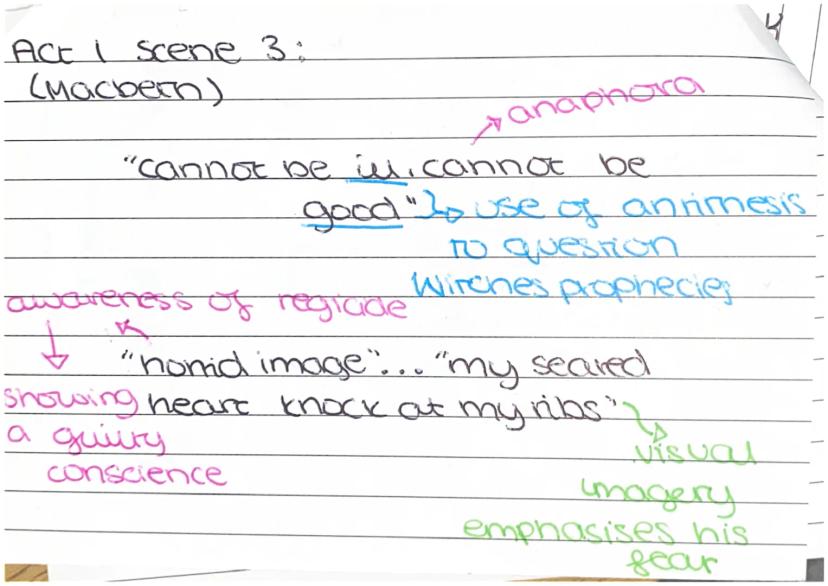 Act 1 scene 3:
(Macbeth)
→ anaphora
"cannot be ill, cannot be
good" → use of antithesis
to question
Witches prophecies
awareness of regicide
"horrid image"... "my seated
heart knock at my ribs"
showing
a guilty
conscience
visual
imagery
emphasises his
fear